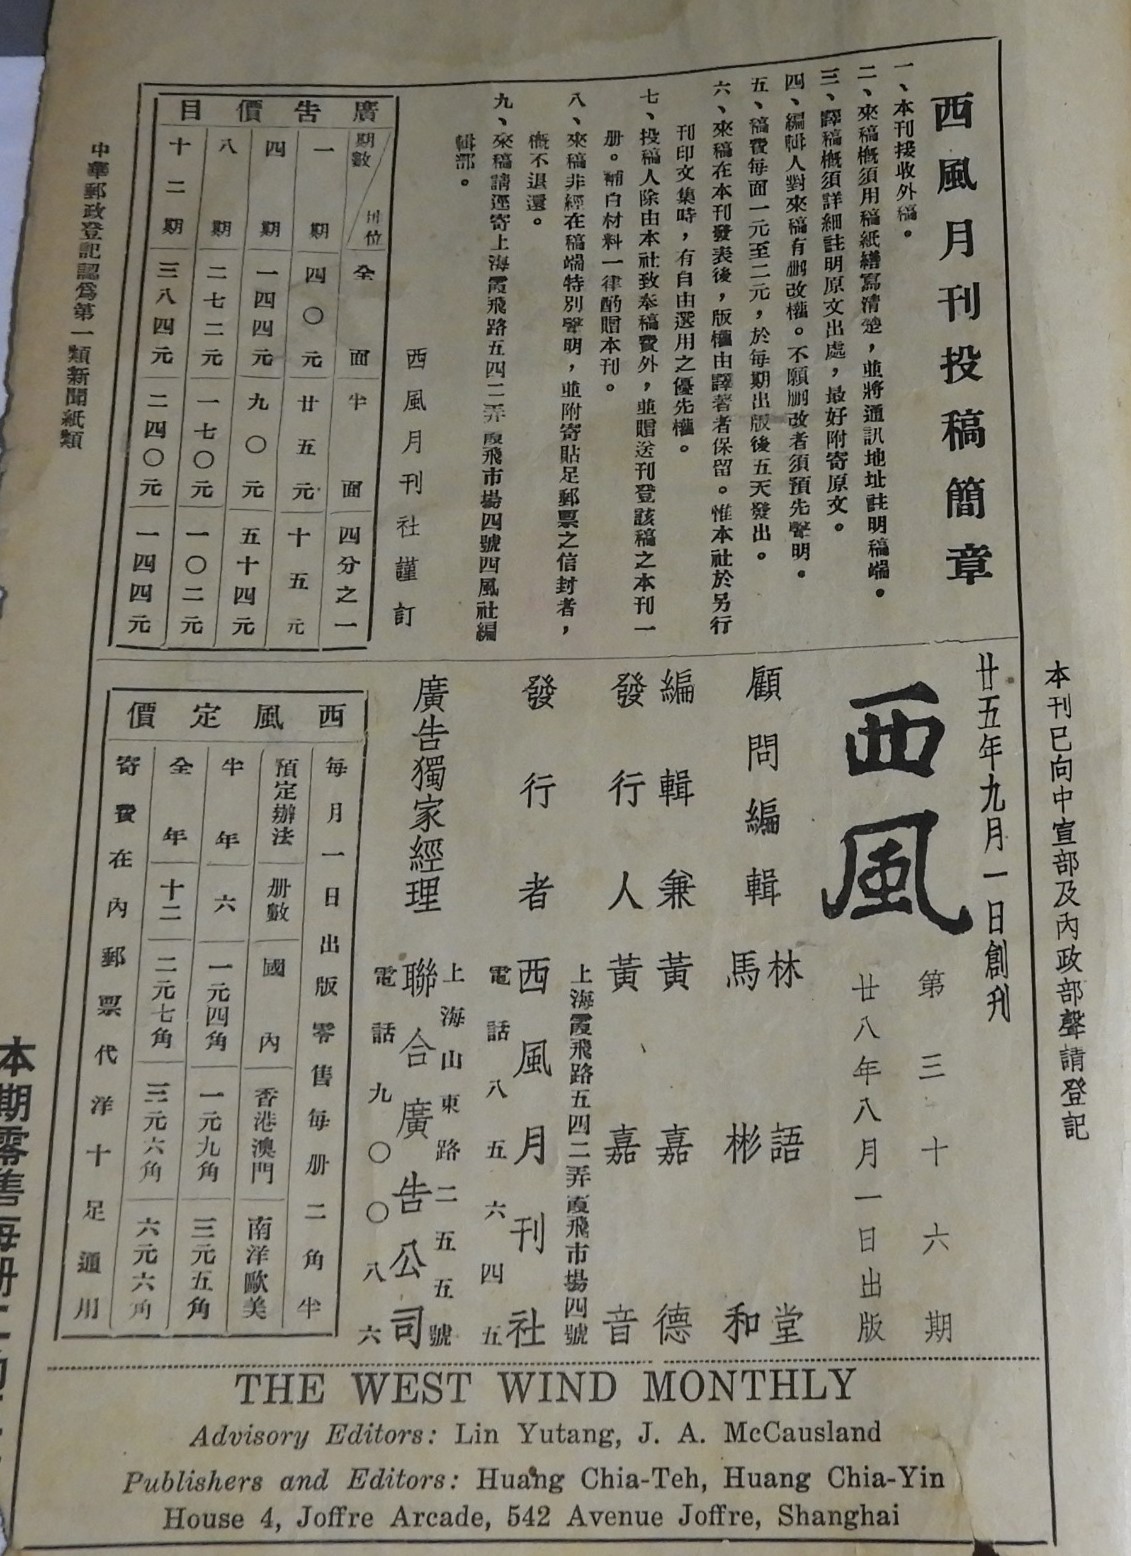 本刊已向中宣部及內政部聲請登記
西風月刊投稿簡章
一、本刊接收外稿。
二、來稿概須用稿紙繕寫清楚，並將通訊地址註明稿端。
三、譯稿概須詳細註明原文出處，最好附寄原文。
四、編輯人對來稿有刪改權。不願刪改者須預先聲明。
五、稿費每面一元至二元，於每期出版後五天發出。
六、來稿在本刊發表後，版權由譯著者保留。惟本社於另行
刊印文集時，有自由選用之優先權。
七、投稿人除由本社致奉稿費外，並贈送刊登該稿之本刊一
册。補白材料一律酌贈本刊。
八、來稿非經在稿端特別聲明，並附寄貼足郵票之信封者，
概不退還。
九、來稿請逕寄上海霞飛路五四二弄霞飛市場四號西風社編
輯部。
西風月刊社謹訂
廣告價目
期數 刊位 全面 半面 四分之一
一期 四〇元 廿五元 十五元
四期 一四四元 九〇元 五十四元
八期 二七二元 一七〇元 一〇二元
十二期 三八四元 二四〇元 一四四元
中華郵政登記認為第一類新聞紙類
廿五年九月一日創刊
西風
第三十六期
廿八年八月一日出版
顧問編輯 林語堂
馬彬和
編輯兼 黃嘉德
發行人 黃嘉音
上海霞飛路五四二弄霞飛市場四號
發行者 西風月刊社
電話八五六四五
上海山東路二五五號
廣告獨家經理 聯合廣告公司
電話九〇〇八六
西風定價
每月一日出版零售每册二角半
預定辦法 册數 國內 香港澳門 南洋歐美
半年 六 一元四角 一元九角 三元五角
全年 十二 二元七角 三元六角 六元六角
寄費在內郵票代洋十足通用
本期零售每册二角
THE WEST WIND MONTHLY
Advisory Editors: Lin Yutang, J. A. McCausland
Publishers and Editors: Huang Chia-Teh, Huang Chia-Yin
House 4, Joffre Arcade, 542 Avenue Joffre, Shanghai